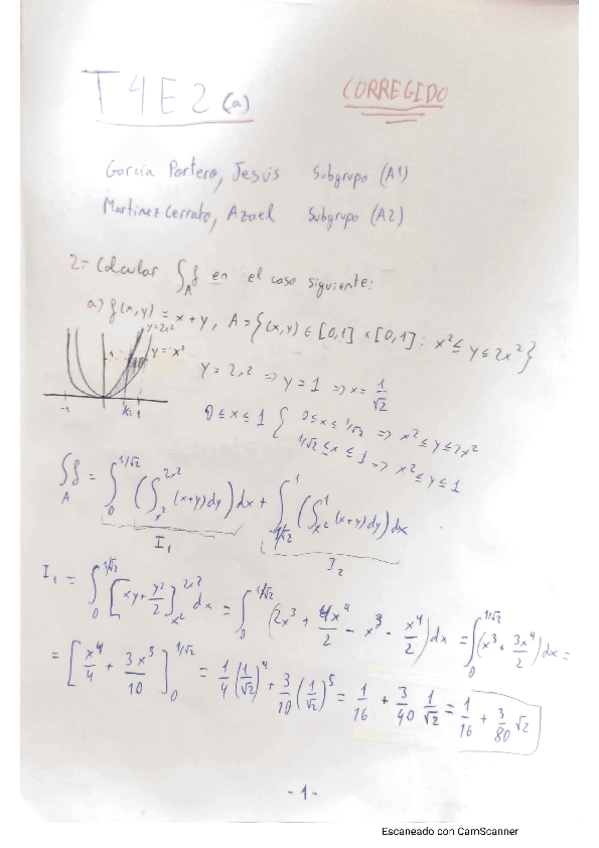 T4E2 (a)
CORREGIDO
García Portero, Jesús Subgrupo (A1)
Martínez Cerrato, Azael Subgrupo (A2)
2.- Calcular ∫_A f en el caso siguiente:
a) f(x,y) = x+y, A = {(x,y) ∈ [0,1] × [0,1] : x² ≤ y ≤ 2x²}
y=2x²
y=x²
1
-1 1/√2 1
y = 2x² => y = 1 => x = 1/√2
0 ≤ x ≤ 1 { 0 ≤ x ≤ 1/√2 => x² ≤ y ≤ 2x²
1/√2 ≤ x ≤ 1 => x² ≤ y ≤ 1
∫∫_A f = ∫_0^{1/√2} (∫_{x²}^{2x²} (x+y)dy) dx + ∫_{1/√2}^1 (∫_{x²}^1 (x+y)dy) dx
I₁ I₂
I₁ = ∫_0^{1/√2} [xy + y²/2]_{x²}^{2x²} dx = ∫_0^{1/√2} (2x³ + 4x⁴/2 - x³ - x⁴/2) dx = ∫_0^{1/√2} (x³ + 3x⁴/2) dx =
= [x⁴/4 + 3x⁵/10]_0^{1/√2} = 1/4 (1/√2)⁴ + 3/10 (1/√2)⁵ = 1/16 + 3/40 1/√2 = 1/16 + 3/80 √2
- 1 -
Escaneado con CamScanner